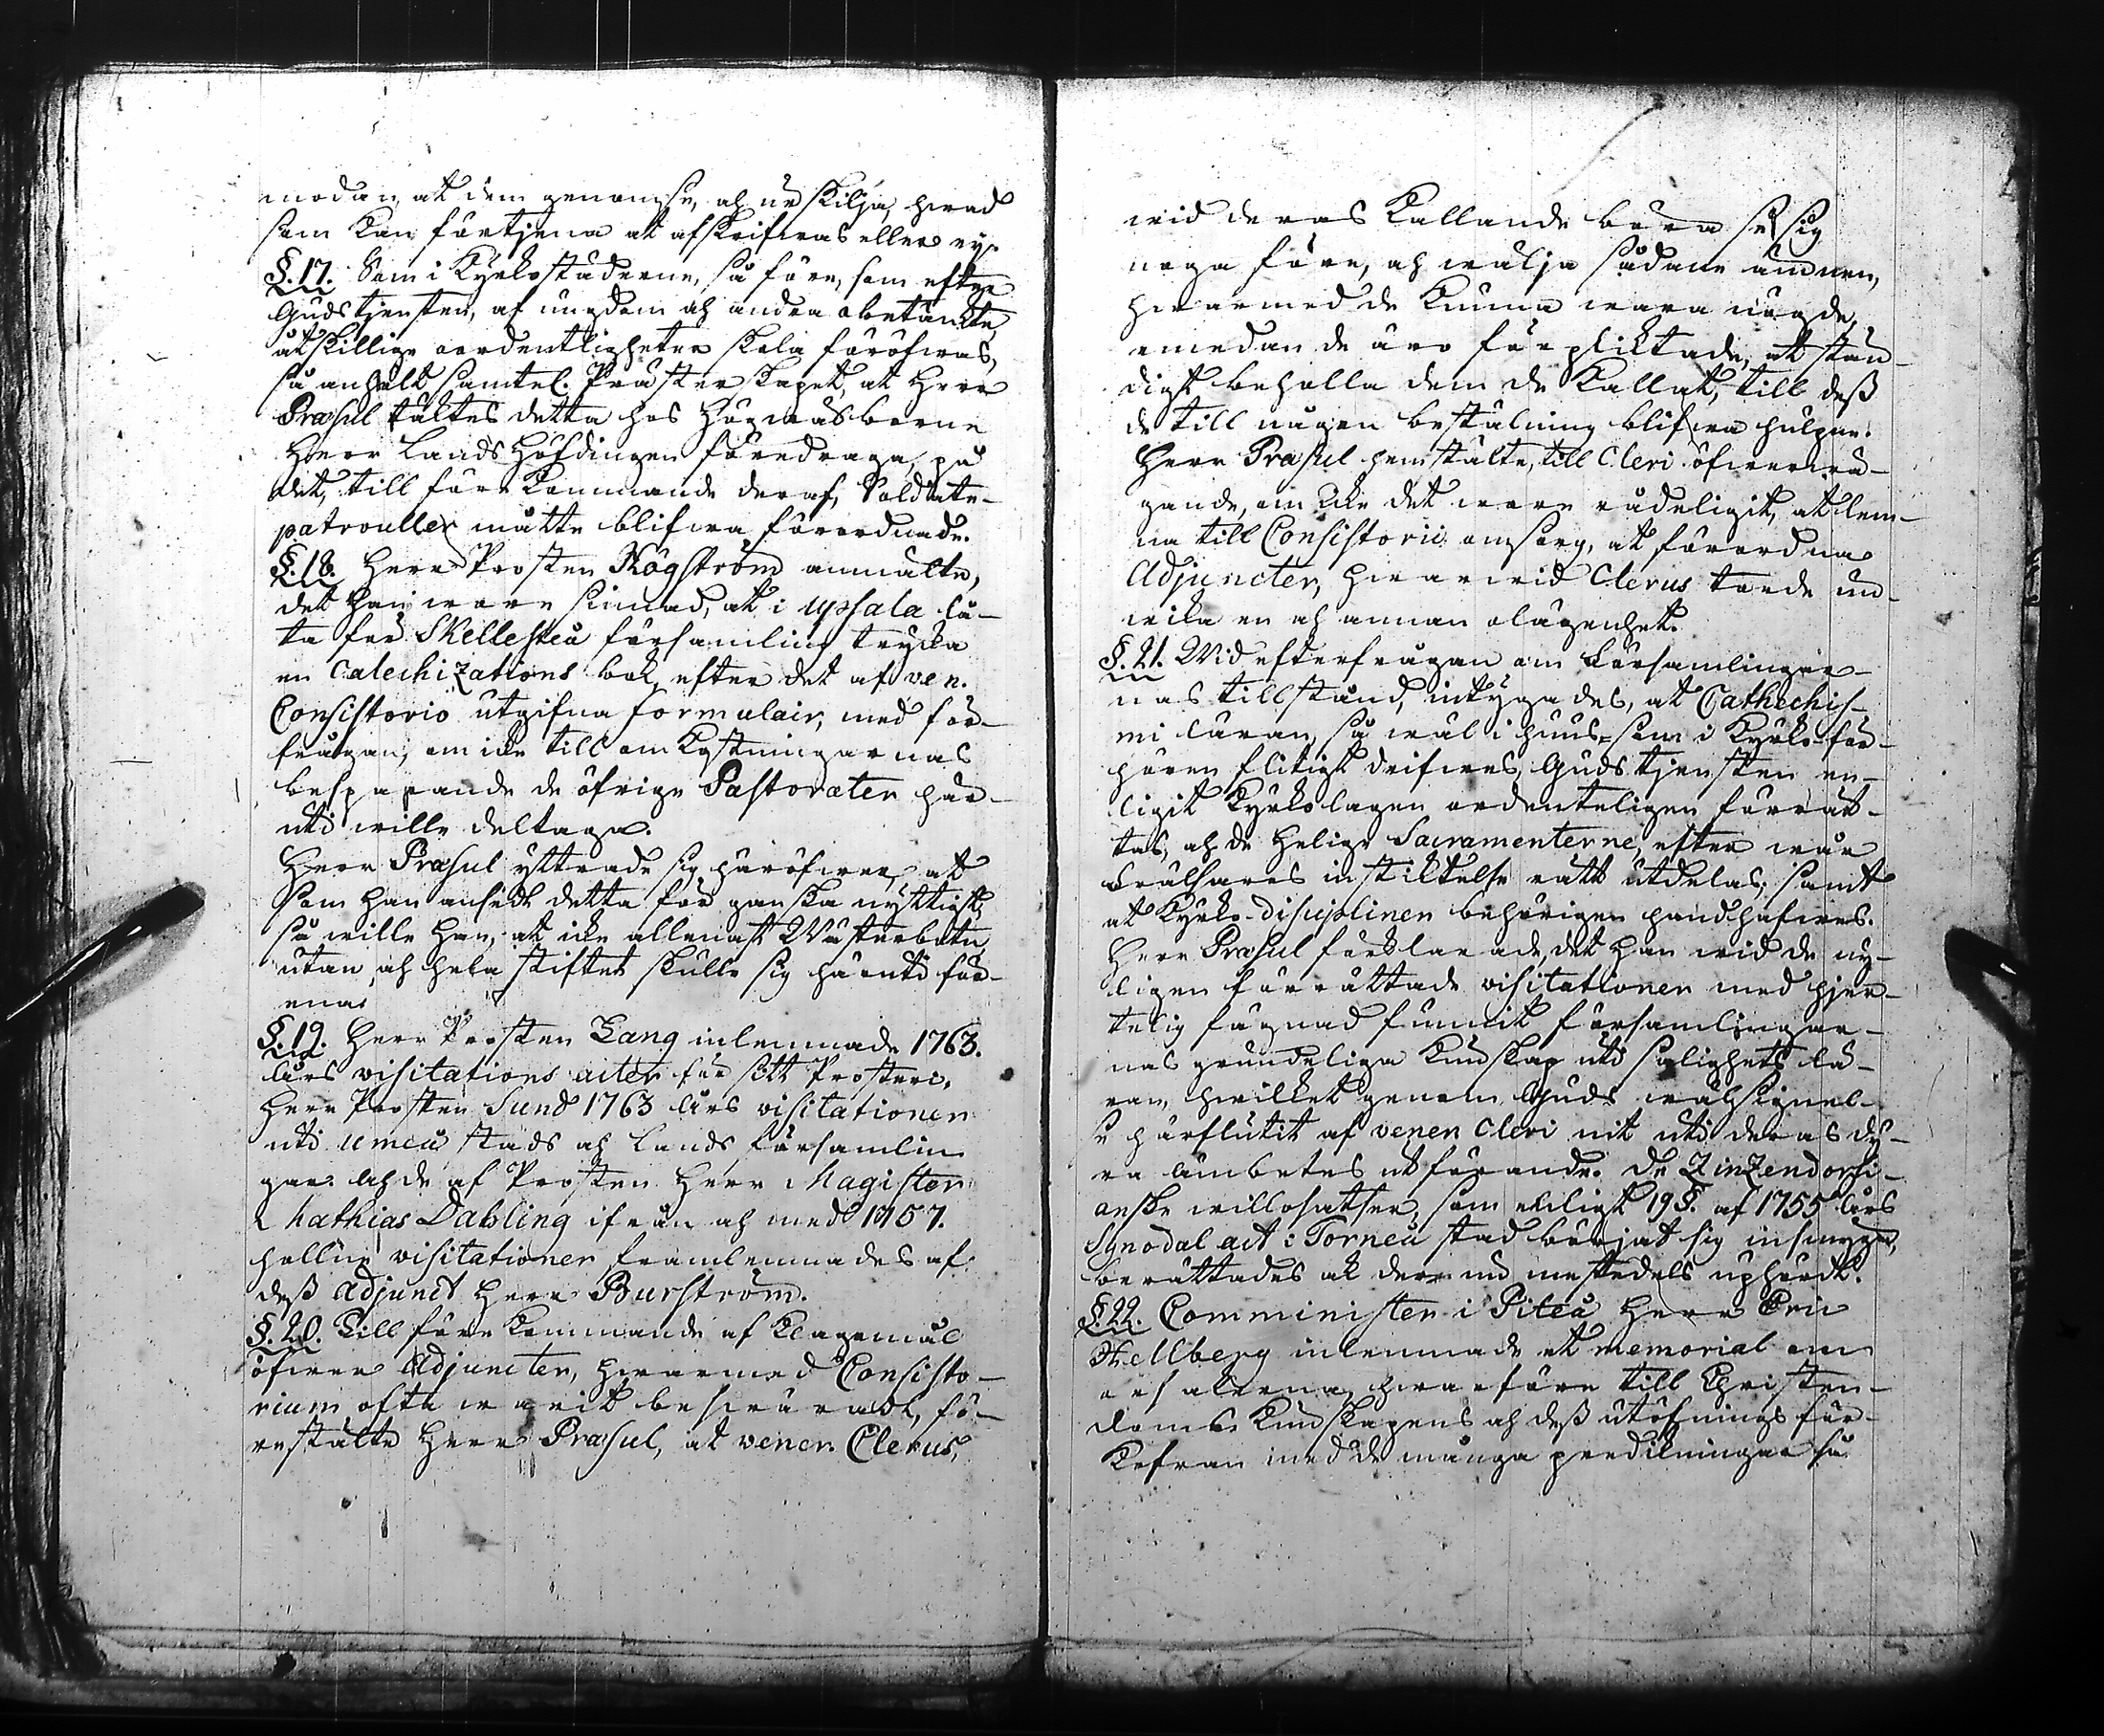 modan, at dem genomse, och urskilja, hwad
som kan förtjena at afskrifwas eller ey.
§. 17. Som i Kyrkostäderne, så före, som efter
Gudstjensten, af ungdom och andra obetänkte,
åtskillige oordentligheter skola föröfwas,
så anhölt samtel. Prästerskapet, at Herr
Præsul täktes detta hos Högwälborne
Herr Lands Höfdingen föredraga, på
det, till förekommande deraf, Soldate-
patrouller måtte blifwa förordnade.
§. 18. Herr Prosten Högström anmälte,
det han wore sinnad, at i Upsala lå-
ta för Skellefteå församling trycka
en Catechizations bok, efter det af ven.
Consistorio utgifna formulair, med för-
frågan, om icke till omkostningarnas
besparande de öfrige Pastorater här-
uti wille deltaga.
Herr Præsul yttrade sig häröfwer, at
som han ansedt detta för ganska nyttigt,
så wille Han, at icke allenast Wästerbotn,
utan och hela stiftet skulle sig häruti för-
ena.
§. 19. Herr Prosten Lang inlemnade 1763.
års visitations acter för sitt Prosteri,
Herr Prosten Sund 1763 års visitationer
uti Umeå stads och Lands församlin
gar. Och de af Prosten Herr Magister
Mathias Dabling ifrån och med 1757.
hollne visitationer framlemnades af
dess Adjunct Herr Burström.
§. 20. Till förekommande af klagomål
öfwer Adjuncter, hwarmed Consisto-
rium ofta warit beswäradt, fö-
restälte Herr Præsul, at vener. Clerus,
wid deras Kallande böra se sig
noga före, och wälja sådane ämnen,
hwarmed de kunna wara nögde,
emedan de äro förpliktade, at stän-
digt beholla dem de kallat, till dess
de till någon beställning blifwa hulpne.
Herr Præsul hemstälte, till Cleri öfwerwä-
gande, om icke det wore rådeligit, at lem-
na till Consistorii omsorg, at förordna
Adjuncter, hwarwid Clerus torde und-
wika en och annan olägenhet.
§. 21. Wid efterfrågan om församlingar-
nas tillstånd, intygades, at Cathechis-
mi läran, så wäl i huus- som i Kyrko-för-
hören flitigt drifwes, Gudstjensten en-
ligit Kyrkolagen ordenteligen förrät-
tas, och de Helige Sacramenterne, efter wår
Frälsares instiktelse rätt utdelas, samt
at Kyrko-disciplinen behörigen handhafwes.
Herr Præsul förklarade, det Han wid de ny-
ligen förrättade visitationer med hjer-
telig fägnad funnit församlingar-
nas grundeliga kundskap uti salighets lä-
ran, hwilket genom Guds wälsignel-
se härflutit af vener Cleri nit uti deras dy-
ra ämbetes utförande. De Zinzendorfi-
anske willosatser, som enligt 19 §. af 1755 års
Synodal act i Torneå stad börjat sig insmyga,
berättades at der nu mestedels uphördt.
§. 22. Comministern i Piteå Herr Eric
Hellberg inlemnade et memorial om
orsakerna, hwarföre till Christen-
doms kundskapens och dess utöfnings för-
kofran med de många predikningar så